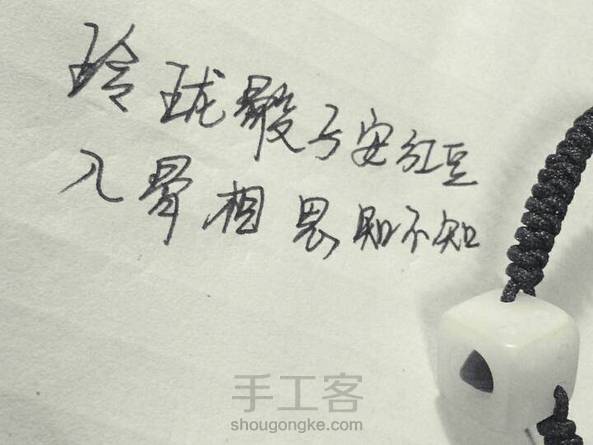 玲珑骰子安红豆
入骨相思知不知
手工客
shougongke.com